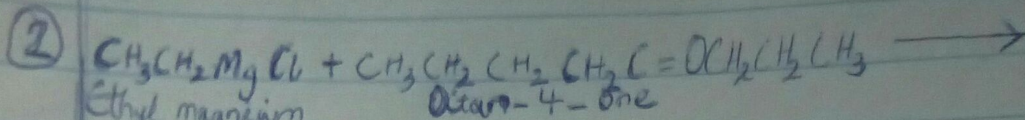 ② CH₃CH₂MgCl + CH₃CH₂CH₂CH₂C=OCH₂CH₂CH₃ ⟶
Ethyl magnesium Octan-4-one